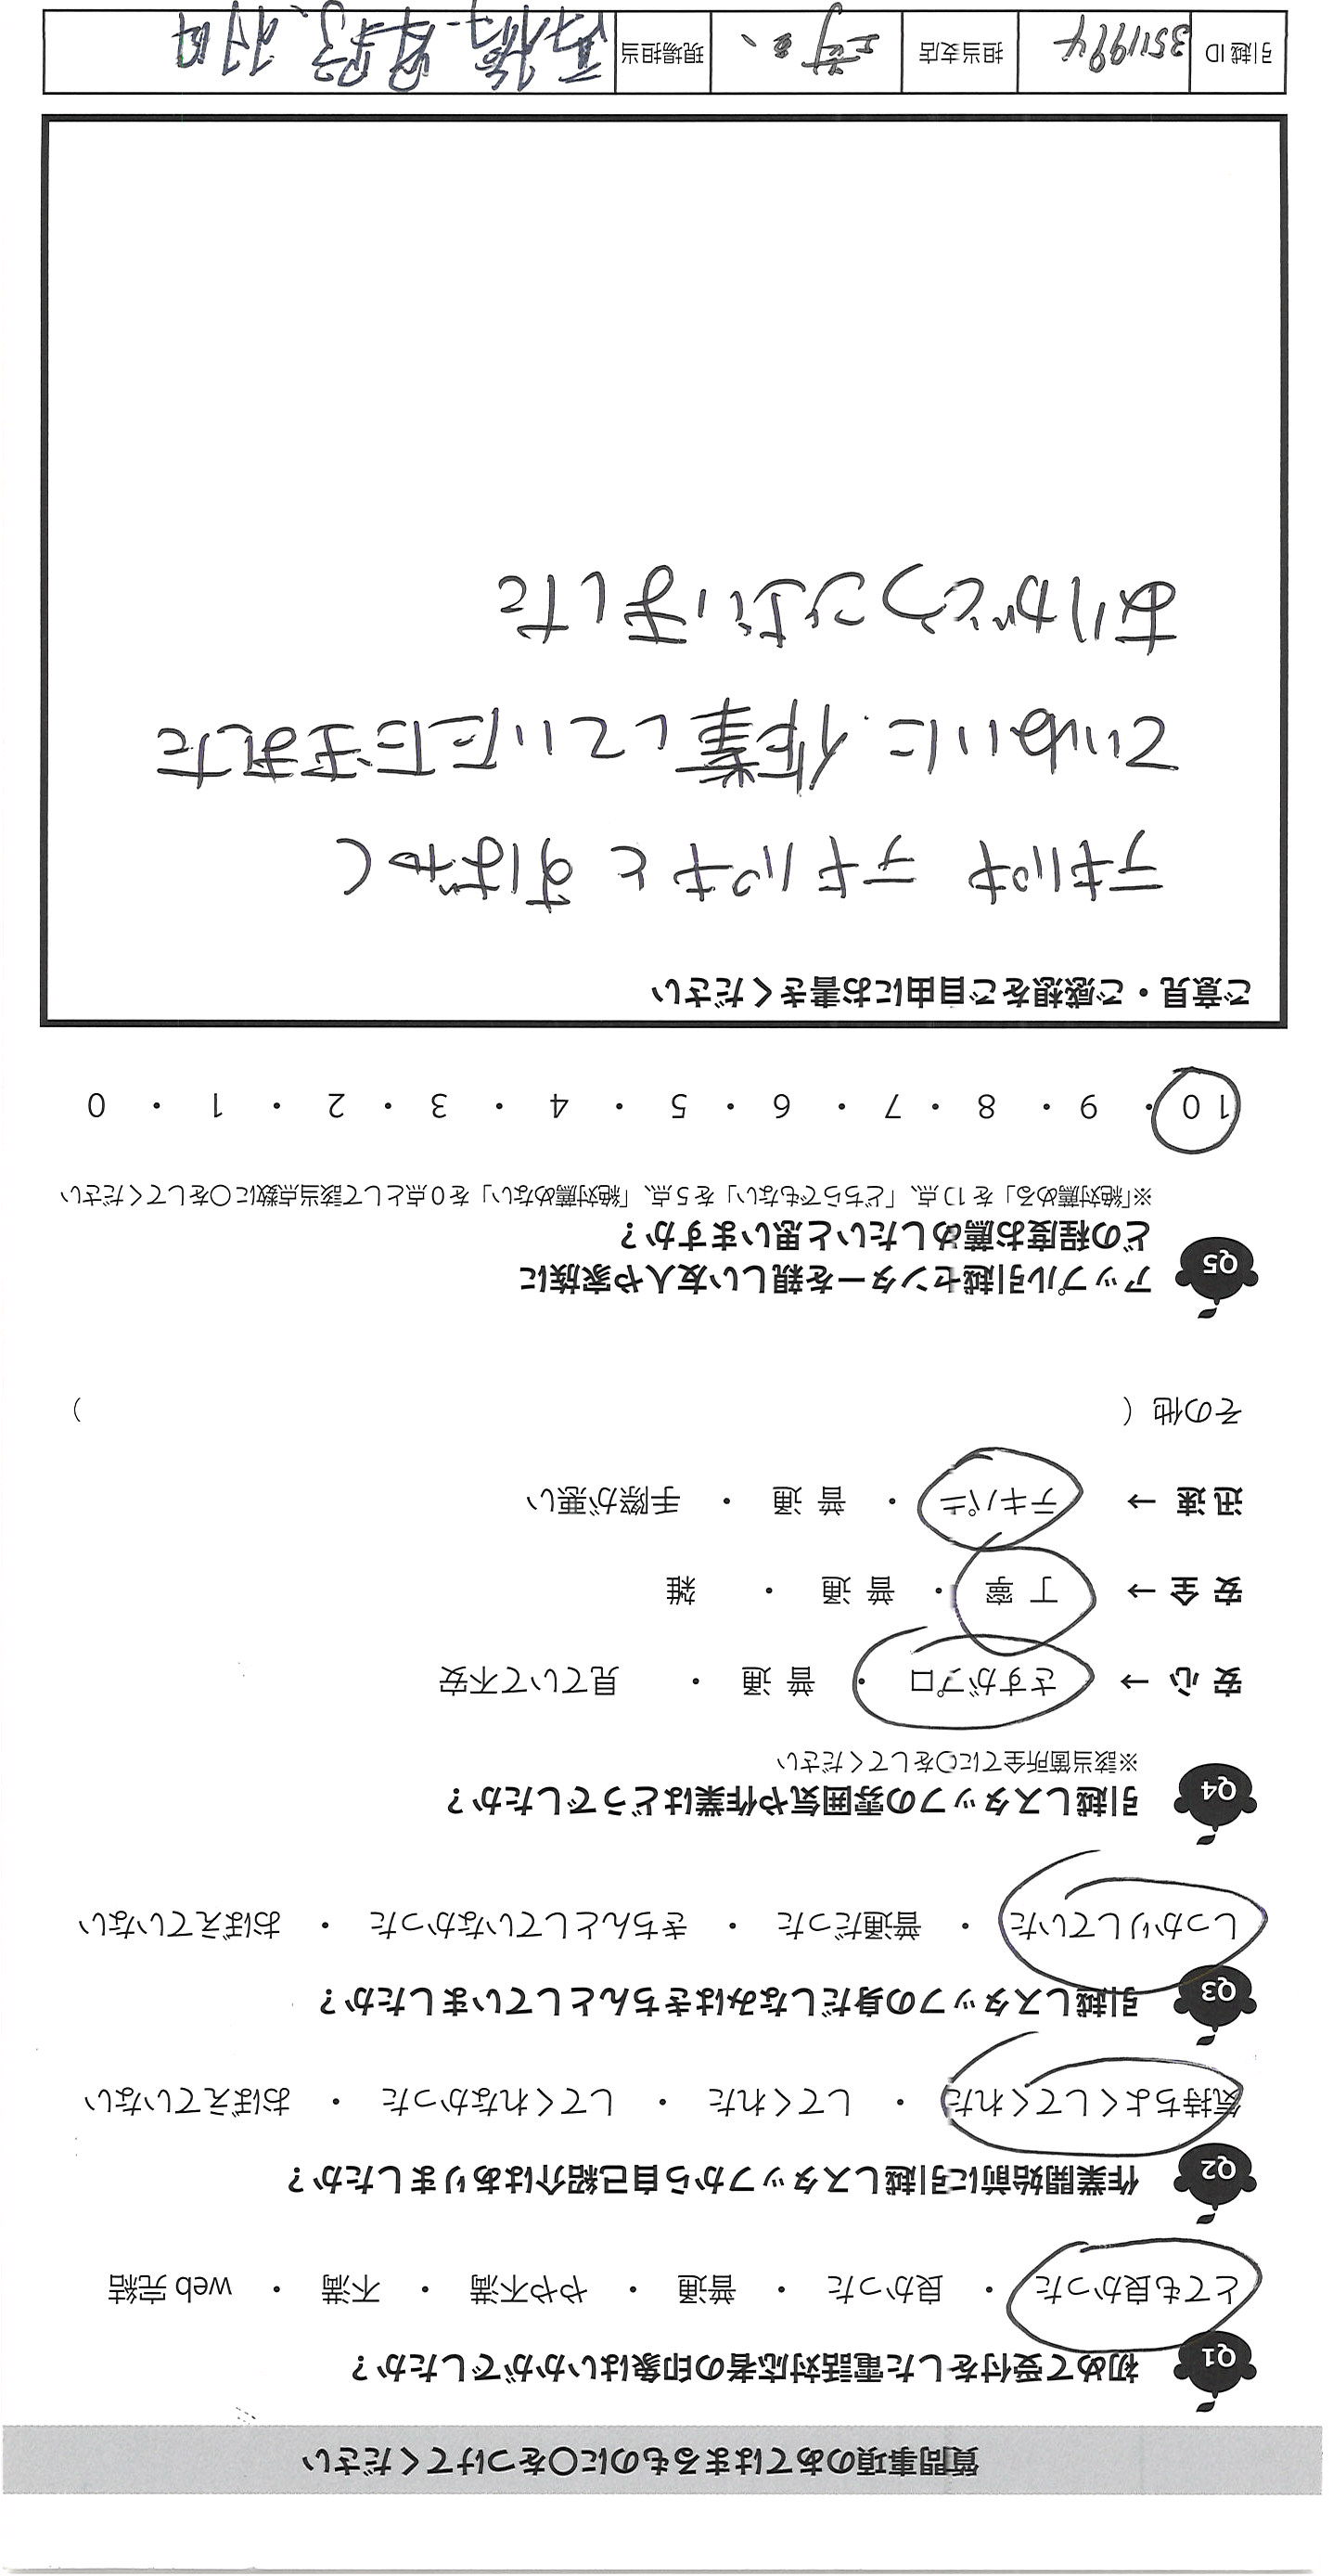 質問事項のあてはまるものに〇をつけてください
Q1 初めて受付をした電話対応者の印象はいかがでしたか？
とても良かった ・ 良かった ・ 普通 ・ やや不満 ・ 不満 ・ web 完結
Q2 作業開始前に引越しスタッフから自己紹介はありましたか？
気持ちよくしてくれた ・ してくれた ・ してくれなかった ・ おぼえていない
Q3 引越しスタッフの身だしなみはきちんとしていましたか？
しっかりしていた ・ 普通だった ・ きちんとしていなかった ・ おぼえていない
Q4 引越しスタッフの雰囲気や作業はどうでしたか？
※該当箇所全てに〇をしてください
安心 → さすがプロ ・ 普通 ・ 見ていて不安
安全 → 丁寧 ・ 普通 ・ 雑
迅速 → テキパキ ・ 普通 ・ 手際が悪い
その他 （ ）
Q5 アップル引越センターを親しい友人や家族に
どの程度お薦めしたいと思いますか？
※「絶対薦める」を10点、「どちらでもない」を5点、「絶対薦めない」を0点として該当点数に〇をしてください
10 ・ 9 ・ 8 ・ 7 ・ 6 ・ 5 ・ 4 ・ 3 ・ 2 ・ 1 ・ 0
ご意見・ご感想をご自由にお書きください
テキパキ テキパキと すばやく
ていねいに 作業していただきました
ありがとうございました
引越 ID 3511994 担当支店 現場担当